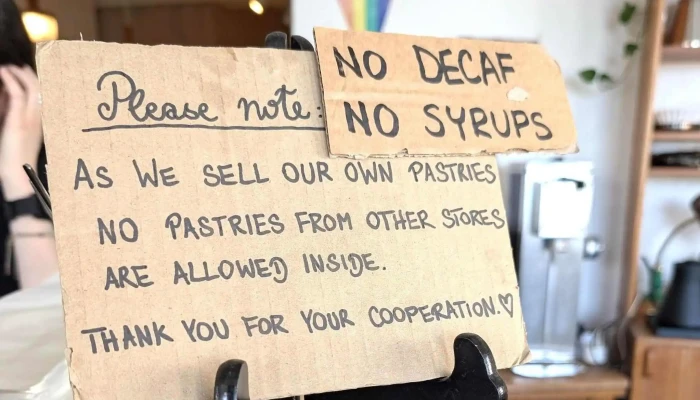 Please note:
NO DECAF
NO SYRUPS
AS WE SELL OUR OWN PASTRIES
NO PASTRIES FROM OTHER STORES
ARE ALLOWED INSIDE.
THANK YOU FOR YOUR COOPERATION.♡